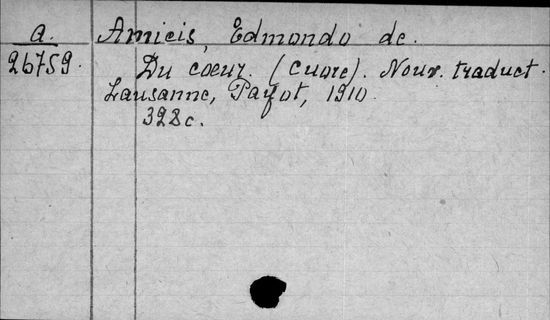 a. Amicis, Edmondo de.
26759. Du coeur. (Cuore). Nouv. traduct.
Lausanne, Payot, 1910.
328c.